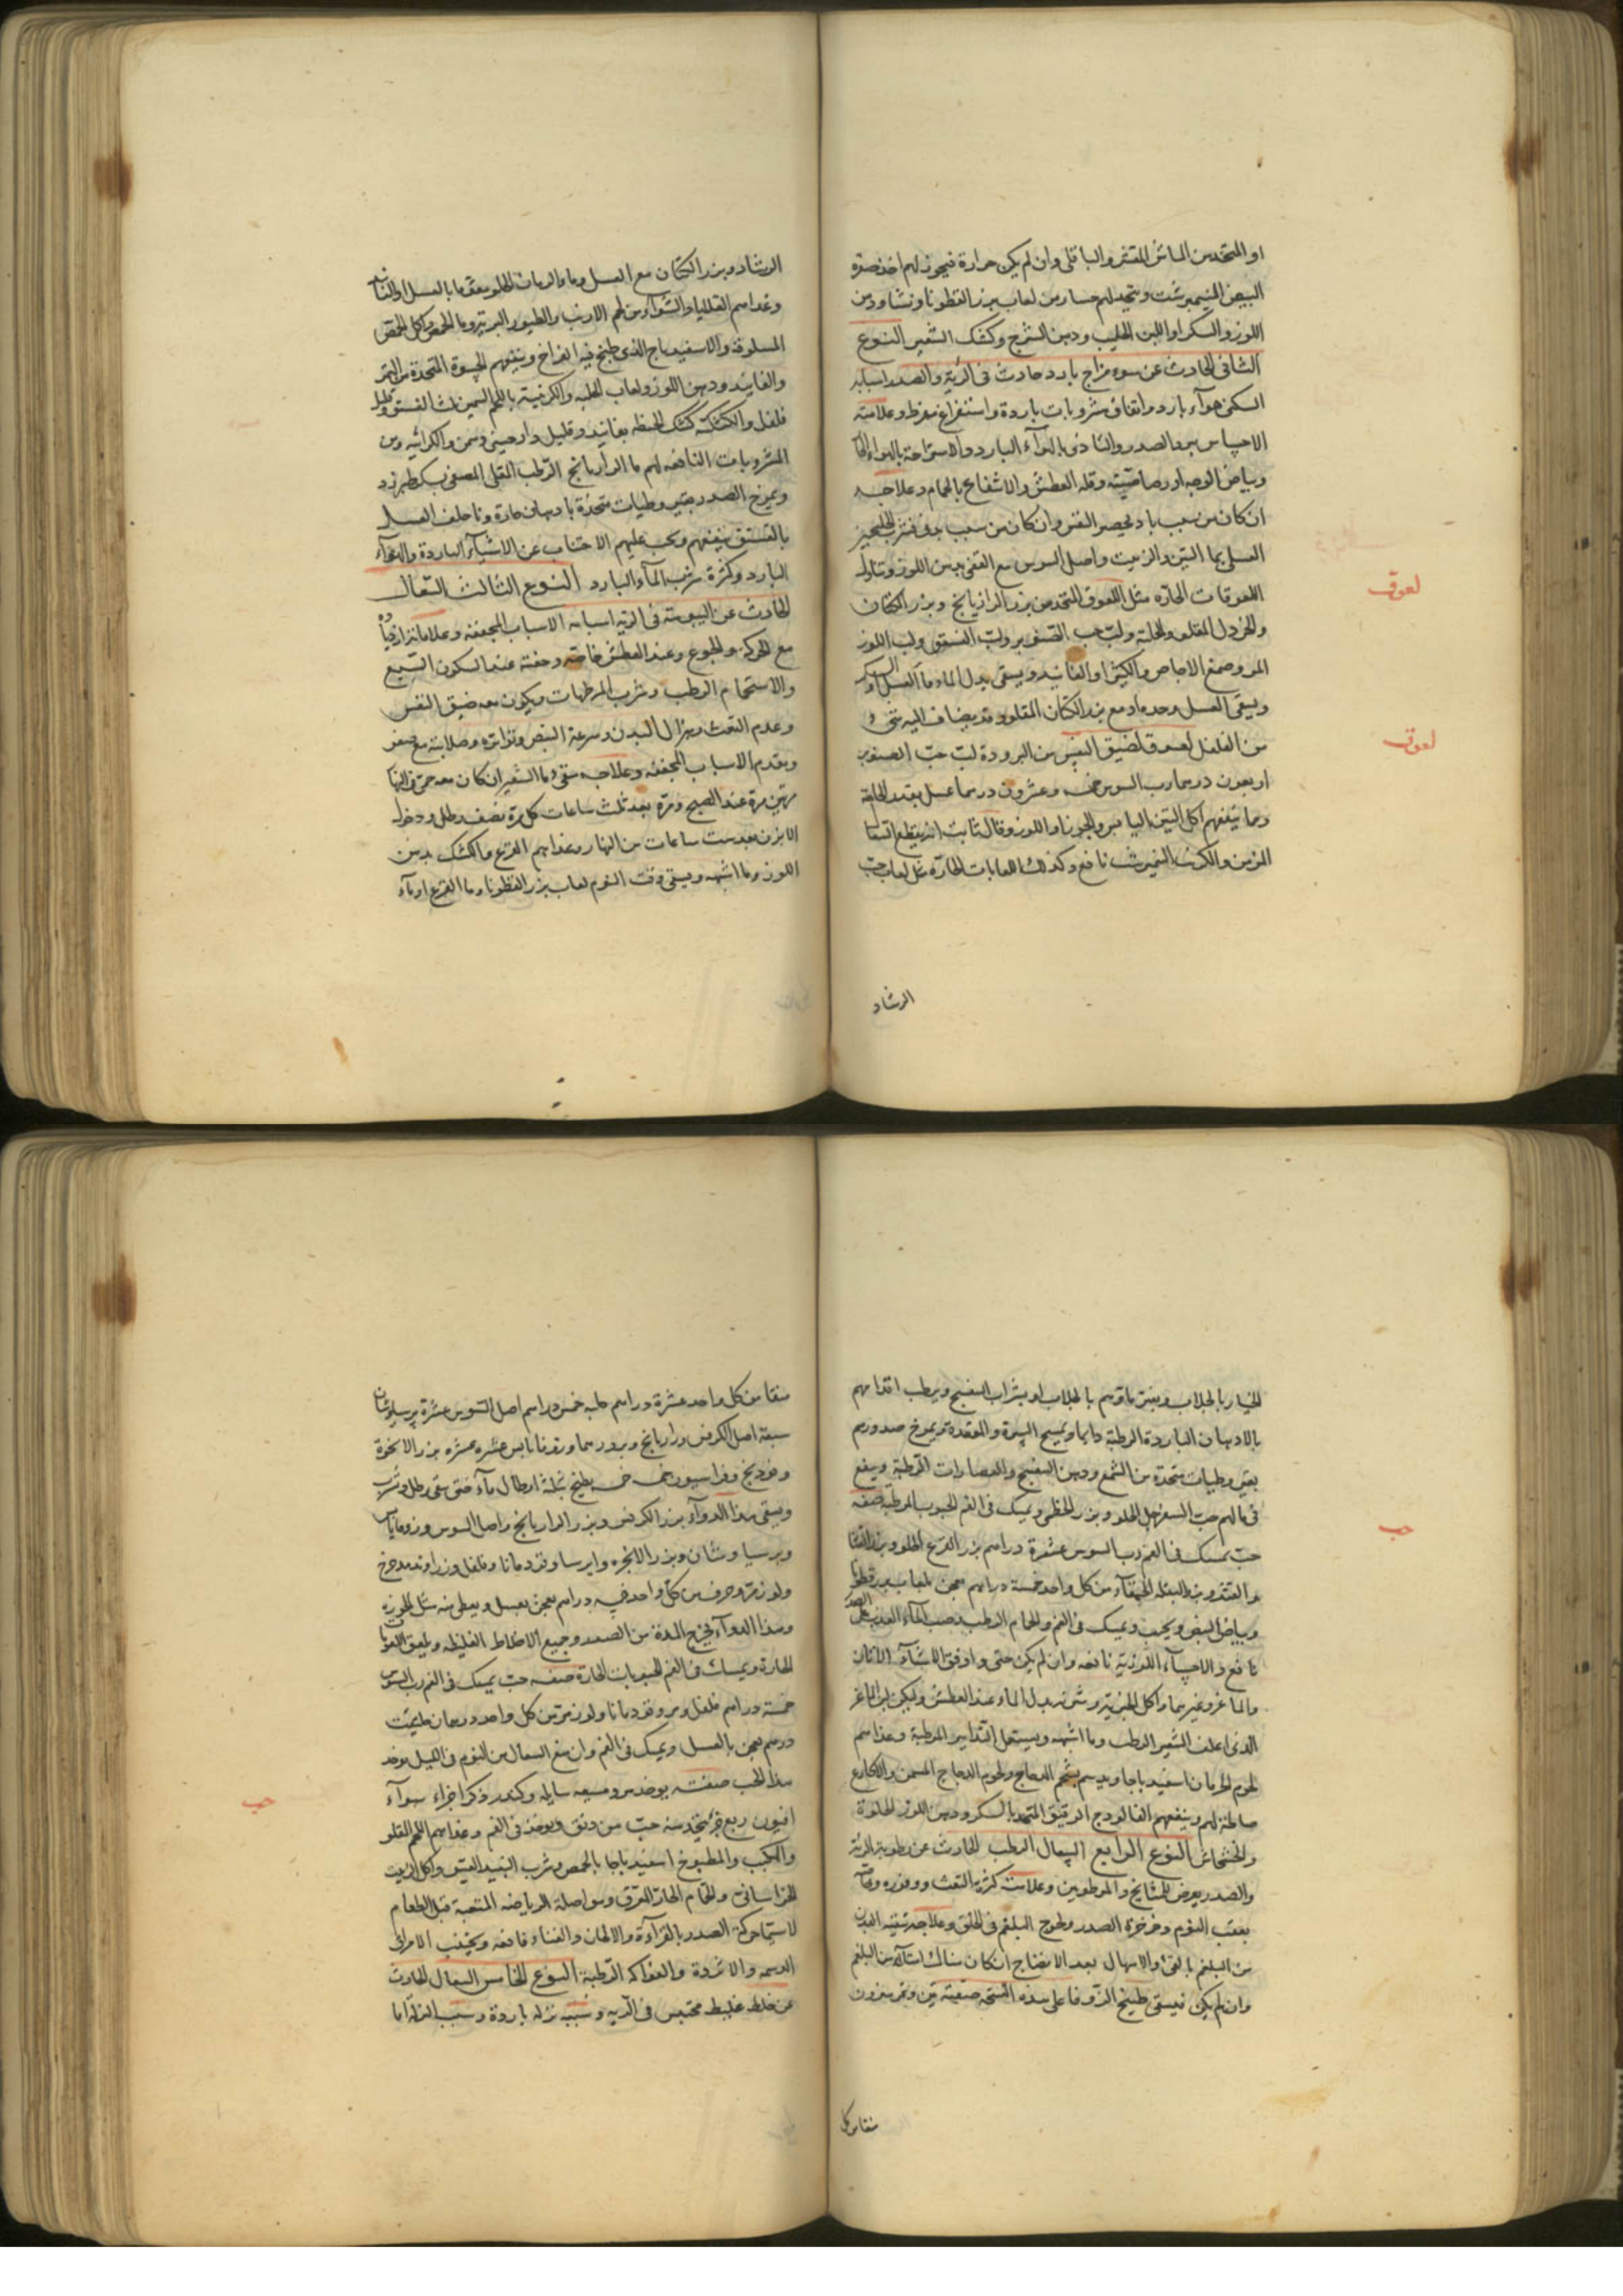 او المتخذ من الماش المقشر والباقلى وان لم يكن حرارة فيجوز لهم اخذ صفرة
البيض النيمبرشت ويتخذ لهم حسا من لعاب بزر القطونا ونشا ودهن
اللوز والسكر او اللبن الحليب ودهن الشيرج وكشك الشعير النوع
الثانى الحادث عن سوء مزاج بارد حادث فى الرئة والصدر اسبابه
السكنى هواء بارد واتفاق مشروبات باردة واستفراغ مفرط وعلامته
الاحساس ببرد الصدر والتاذى بالهواء البارد والاستراحة بالهواء الحار
وبياض الوجه او رصاصيته وقلة العطش والانتفاع بالحمام وعلاجه
ان كان من سبب باد بحصر النفس وان كان من سبب بدنى فشرب الخلنجبين
العسلى بما التين والزبيب واصل السوس مع القفى بدهن اللوز وتناول
اللعوقات الحارة مثل اللعوق المتخذ من بزر الرازيانج وبزر الكتان
والخردل المقلو والحلبة ولب حب الصنوبر ولب الفستق ولب اللوز
المر وصمغ الاجاص والكثيرا والفانيد ويسقى بدل الماء ماء العسل او السكر
ويسقى العسل وحده او مع بزر الكتان المقلو وقد يضاف اليه شئ
من الفلفل لعوق لضيق النفس من البرودة لب حب الصنوبر
اربعون درهما رب السوس خمسة وعشرون درهما عسل بقدر الحاجة
ومما ينفعهم اكل التين اليابس والجوز او اللوز وقال ثابت انه يقطع السعال
المزمن والكرنب النيمبرشت نافع وكذلك اللعابات الحارة مثل لعاب حب
الرشاد
لعوق
لعوق
الرشاد وبزر الكتان مع العسل وماء الرمان الحلو معقدا بالعسل او الفانيد
وغذاءهم القلايا والشواء من لحم الارنب والطيور البرية وماء الحمص واكل الحمص
المسلوقة والاسفيدباج الذى طبخ فيه الفراخ وينفعهم الحسوة المتخذة من التمر
والفانيد ودهن اللوز ولعاب الحلبة والكرنبية باللحم السمين ثم الفستق وقليل
فلفل والكشكية كشك الحنطة بفانيد وقليل دارصينى وسمن والكراثية ومن
المشروبات النافعة لهم ماء الرازيانج الرطب المغلى المصفى بسكر طبرزد
ويمرخ الصدر بقيروطيات متخذة بادهان حارة وناطف العسل
بالفستق ينفعهم ويجب عليهم الاجتناب عن الاشياء الباردة والهواء
البارد وكثرة شرب الماء البارد النوع الثالث السعال
الحادث عن اليبوسة فى الرئة اسبابه الاسباب المجففة وعلاماته ازدياده
مع الحركة والجوع وعند العطش خاصة وخفته عند السكون الشبع
والاستحمام الرطب وشرب المرطبات ويكون معه ضيق النفس
وعدم النفث وهزال البدن وسرعة النبض وتواتره وصلابته مع صغر
وتقدم الاسباب المجففة وعلاجه سقى ماء الشعير ان كان معه حمى فى النهار
مرتين مرة عند الصبح ومرة بعد ثلث ساعات كل مرة نصف رطل ودخول
الابزن بعد ست ساعات من النهار وغذاءهم القرع وماء الكشك بدهن
اللوز وما اشبهه ويسقى وقت النوم لعاب بزر القطونا وماء القرع او ماء
الخيار بالجلاب وينقى ماؤهم بالجلاب او بشراب البنفسج ويرطب اقدامهم
بالادهان الباردة الرطبة دايما ويمسح السرة والمقعدة ويمرخ صدورهم
بقيروطيات متخذة من الشمع ودهن البنفسج والعصارات الرطبة وينفع
فى حالهم حب السفرجل الحلو وبزر الخطمى ويمسك فى الفم الحبوب المرطبة صفة
حب يمسك فى الفم رب السوس عشرة دراهم بزر القرع الحلو وبزر القثا
والقثد وبزر البقلة الحمقاء من كل واحد خمسة دراهم يعجن بلعاب بزر قطونا
وبياض البيض ويحبب ويمسك فى الفم والحمام الرطب وصب الماء العذب على الصدر
نافع والاحساء اللوزية نافعة وان لم يكن حمى واوفق الاشياء الالبان
والماعز وغيرهما واكل الجبن طرى وشربه بدل الماء عند العطش وليكن لبن الماعز
الذى اعلف الشعير الرطب وما اشبهه ويستعمل التدابير المرطبة وغذاءهم
لحوم الحرفان اسفيدباجا ويدسم بشحم الدجاج ولحوم الدجاج المسمن والاكارع
صالحة لهم وينفعهم الفالوذج الرقيق المتخذ بالسكر ودهن اللوز الحلوة
والخشخاش النوع الرابع السعال الرطب الحادث عن رطوبة الرئة
والصدر يعرض للمشايخ والمرطوبين وعلامته كثرة النفث ووفوره وخاصة
بعقب النوم وخرخرة الصدر وخروج البلغم فى الحلق وعلاجه تنقية البدن
من البلغم بالقئ والاسهال بعد الانضاج ان كان هناك امتلاء من البلغم
وان لم يكن فيسقى طبيخ الزوفا على هذه النسخة صفته تين وتمر منزوع
منقا من كل
حب
منقا من كل واحد عشرة دراهم حلبه خمس دراهم اصل السوس عشرة برسياوشان
سبعة اصل الكرفس ورازيانج وبزورهما وزوفا يابس عشرة عشرة بزر الانجرة
وفوذنج وفراسيون خمسة خمسة يطبخ بثلثة ارطال ماء حتى يبقى رطل ويشرب
ويسقى هذا الدواء بزر الكرفس وبزر الرازيانج واصل السوس وزوفا يابس
وبرسياوشان وبزر الانجره وايرسا وقردمانا وفلفل وزراوند مدحرج
ولوز مر وحرف من كل واحد خمسة دراهم يعجن بعسل ويعطى منه مثل الجوزة
وهذا الدواء يخرج المدة من الصدر وجميع الاخلاط الغليظة ويلعق اللعوقات
الحارة ويمسك فى الفم الحبوبات الحارة صفة حب يمسك فى الفم رب السوس
خمسة دراهم فلفل ومر وقردمانا ولوز مر من كل واحد درهمان حلتيت
درهم يعجن بالعسل ويمسك فى الفم وان منع السعال من النوم فى الليل يوخذ
هذا الحب صفته يوخذ مر وميعه سايله وكندر ذكر اجزاء سواء
افيون ربع جزء يتخذ منه حب من دنق ويوخذ فى الفم وغذاءهم اللحم القلو
والكبب والمطبوخ اسفيدباجا بالحمص وشرب النبيذ العتيق واكل الزبيب
الخراسانى والحمام الحار المعرق ومواصلة الرياضة المتعبة قبل الطعام
لاسيما حركة الصدر بالقراءة والالحان والغناء نافعة ويجتنب الامراق
الدسمه والاثردة والفواكه الرطبة النوع الخامس السعال الحادث
عن خلط غليظ محتبس فى الريه وسببه نزله باردة وسبب النزلة اما
حب